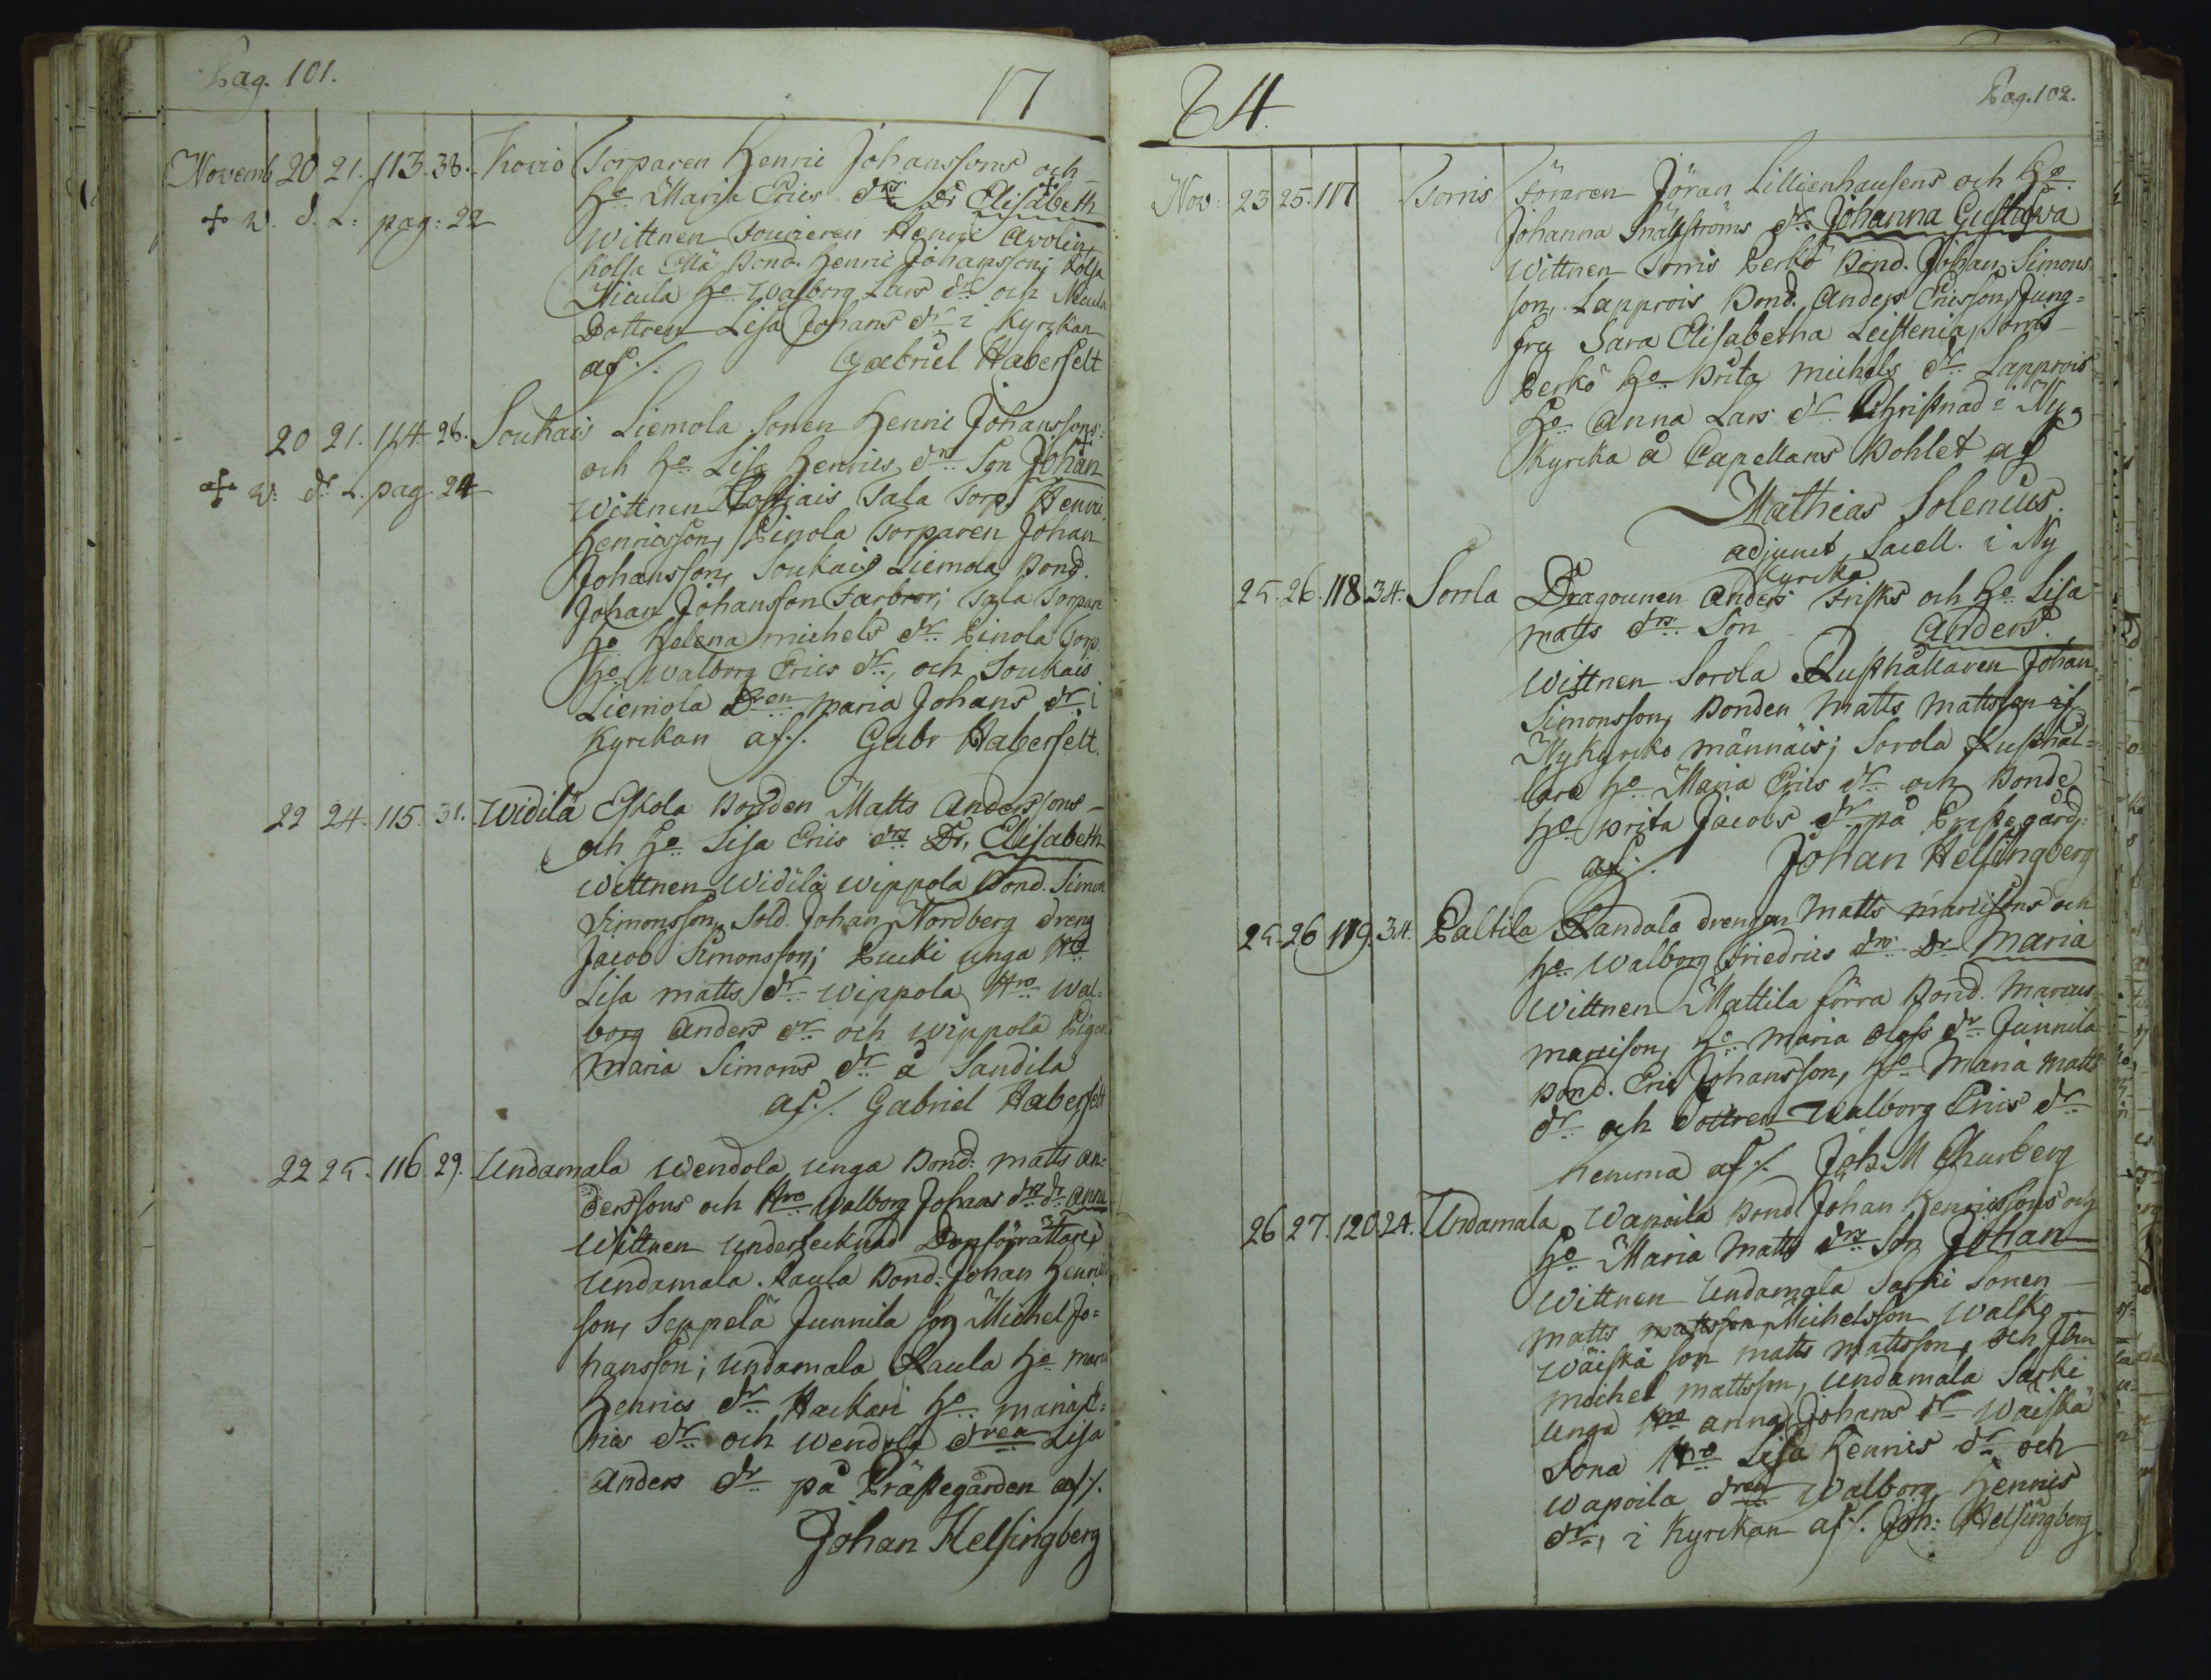 Pag. 101.
17
Novemb 20 21. 113. 38. Kovio Torparen Henric Johanssons och
H:o Maria Erics drs Dr Elisabeth
+ v. d. L: pag: 22
Wittnen Foureren Henric Avolin,
Kolsa Ellä Bond. Henric Johansson; Kolsa
Nicula H:o Walborg Lars dr och Nicula
Dottren Lisa Johans dr i Kyrckan
af ./. Gabriel Haberfelt
20 21. 114. 26. Soukais Liemola Sonen Henric Johanssons
och H:o Lisa Henrics drs Son Johan
+ v: d. L. pag. 24
Wittnen Tala Torp. Henric
Henricsson, Pinola Torparen Johan
Johansson, Soukais Liemola Bond.
Johan Johansson Farbror; Tala Torpare
H:o Helena Michels dr Pinola Torp.
H:o Walborg Erics dr, och Soukais
Liemola Dren Maria Johans dr i
Kyrckan af ./. Gabr Haberfelt.
22 24. 115. 31. Widilä Eskola Bonden Matts Anderssons
och H:o Lisa Erics drs Dr, Elisabeth
Wittnen Widilä Wippola Bond. Simon
Simonsson, Sold. Johan Nordberg dreng
Jacob Simonsson; unga H:o
Lisa Matts dr Wippola H:o Wal=
borg Anders dr och Wippola Pigan
Maria Simons dr å Sandila
af ./. Gabriel Haberfelt
22 25. 116. 29. Undamala Wendola unga Bond: Matts An=
derssons och H:o Walborg Johans drs dr Anna
Wittnen Undertecknad Dopförrättare,
Undamala Raula Bond: Johan Henrics
son, Seppelä Junnila son Michel Jo=
hansson; Undamala Raula H:o Maria
Henrics dr Hackari H:o Maria E=
rics dr och Wendola dren Lisa
Anders dr på Prästegården af ./.
Johan Helsingberg
84.
Pag. 102.
Nov: 23 25. 117 Torris Föraren Jöran Lillienhausens och H:o
Johanna Snällströms dr Johanna Gustava
Wittnen Torris Perkö Bond. Johan Simons
son, Lapprois Bond. Anders Ericsson, Jung=
fru Sara Elisabetha Leistenia, Torris
Perkö H:o Brita Michels dr Lapprois
H:o Anna Lars dr Christnad i Ny
Kyrcka å Capellans Bohlet af
Mathias Solenius.
adjunct Sacell. i Ny
Kyrcka
25. 26. 118. 34. Sorrla Dragounen Anders Frisks och H:o Lisa
Matts drs Son Anders.
Wittnen Sorola Rusthållaren Johan
Simonsson, Bonden Matts Mattsson if
Nykyrcko männäis; Sorola Rusthål=
lare H:o Maria Erics dr och Bonde
H:o Brita Jacobs dr på Prästegård:
af ./. Johan Helsingberg
25. 26 119. 34. Paltila Randala drengen Matts Marcisons och
H:o Walborg Friedrics drs Dr Maria
Wittnen Mattila förra Bond. Marcus
Marcison, H:o Maria Olofs dr Junnila
Bond. Eric Johansson, H:o Maria Matts
dr och dottren Walborg Erics dr
hemma af ./. Joh. M Churberg
26 27. 120. 24. Undamala Wapoila Bond Johan Henricssons och
H:o Maria Matts drs Son Johan
Wittnen Undamala Sarki Sonen
Matts Mattsson Michelsson Walko
Wäiskä son Matts Mattsson, och
Michel Mattsson, Undamala Sarki
unga H:o Anna Johans dr Wäiskä
Sona H:o Lisa Henrics dr och
Wapoila dren Walborg Henrics
dr, i Kyrckan af ./. Joh: Helsingberg